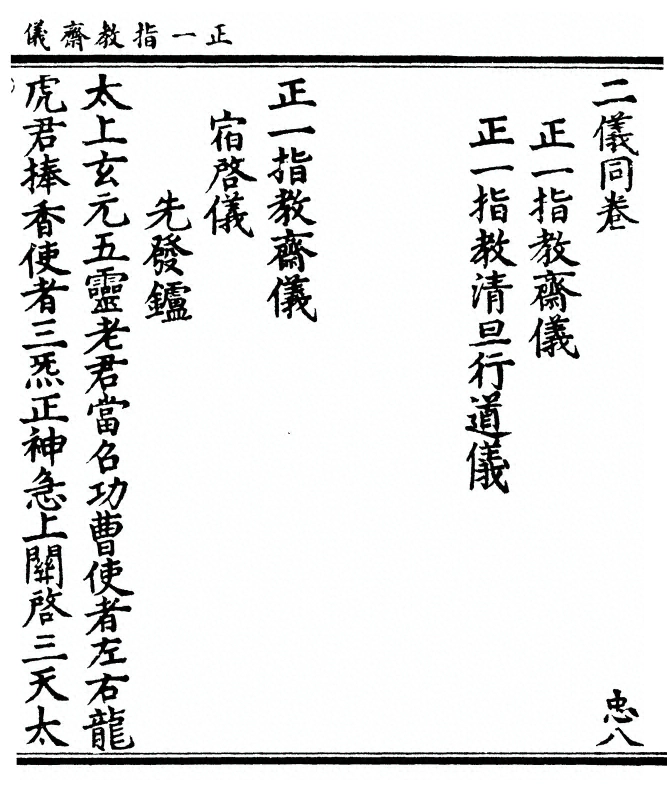 正一指教齋儀
二儀同卷 忠八
正一指教齋儀
正一指教清旦行道儀
正一指教齋儀
宿啓儀
先發鑪
太上玄元五靈老君當召功曹使者左右龍
虎君捧香使者三炁正神急上關啓三天太